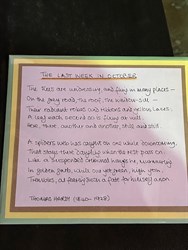 THE LAST WEEK IN OCTOBER
The trees are undressing, and fling in many places –
On the grey road, the roof, the window-sill –
Their radiant robes and ribbons and yellow laces;
A leaf each second so is flung at will,
Here, there, another and another, still and still.
A spider's web has caught one while downcoming,
That stays there dangling when the rest pass on;
Like a suspended criminal hangs he, mumming
In golden garb, while one yet green, high yon,
Trembles, as fearing such a fate for himself anon.
THOMAS HARDY (1840-1928)